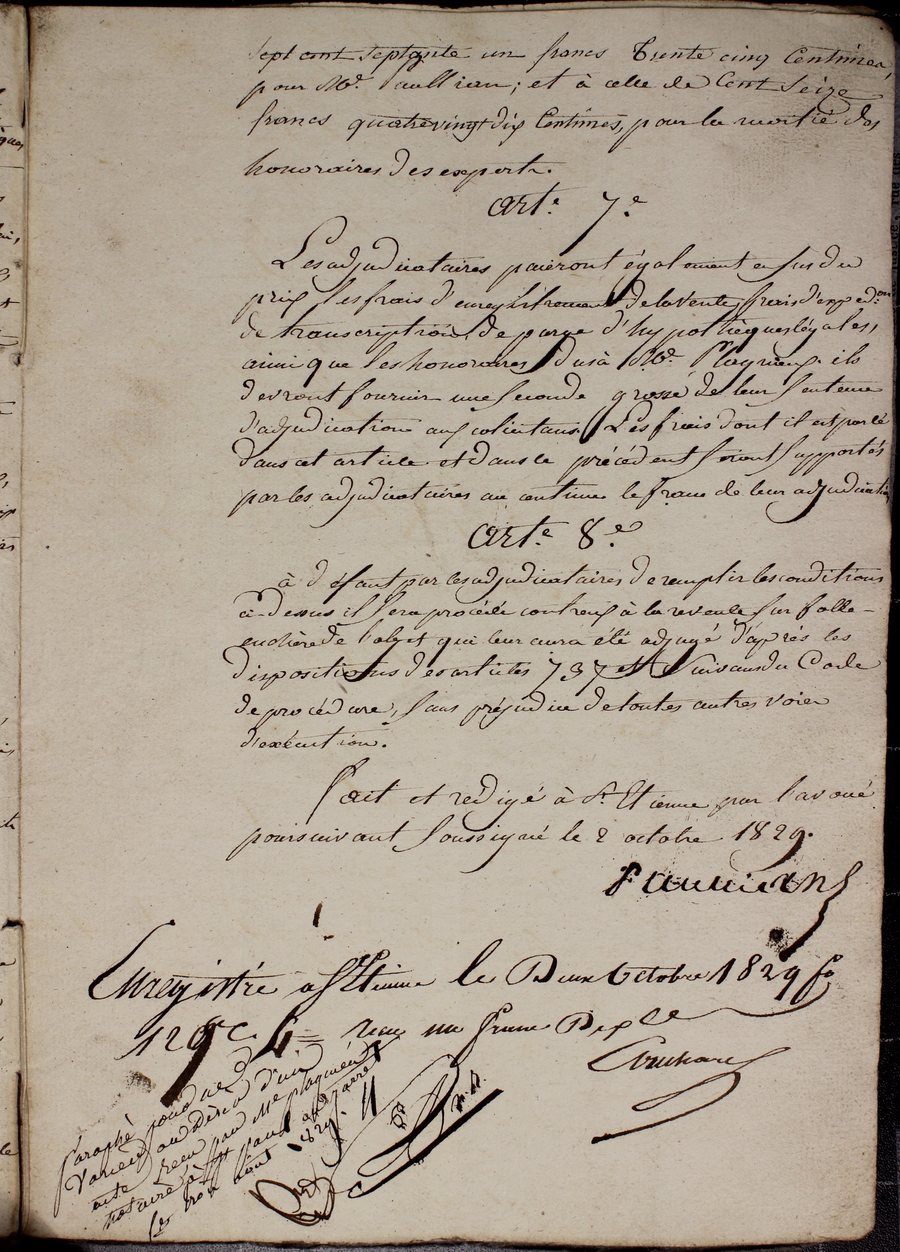 sept cent septante un francs trente cinq Centimes,
pour Me. Jullien; et à celle de Cent Seize
francs quatrevingt dix Centimes, pour la moitié des
honoraires des experts.
arte. 7e.
Les adjudicataires paieront également en sus du
prix les frais d'enregistrement de la vente, frais d'exped.on
de transcription, de purge d'hypothèques légales,
ainsi que les honoraires dus à Me. Plagnieux. ils
devront fournir une seconde grosse de leur sentence
d'adjudication aux colicitans. Les frais dont il est parlé
dans cet article et dans le précédent seront supportés
par les adjudicataires au centime le franc de leur adjudication
arte. 8e.
à défaut par les adjudicataires de remplir les conditions
ci-dessus il sera procédé contr'eux à la revente sur folle-
enchère de l'objet qui leur aura été adjugé d'après les
dispositions des articles 737 et suivans du Code
de procédure, sans préjudice de toutes autres voies
d'exécution.
Fait et rédigé à St. Etienne par l'avoué
poursuivant soussigné le 2 octobre 1829.
Enregistré à St Etienne le Deux Octobre 1829 fo
126 c. 6 reçu un franc Dix
Paraphé
au désir d'un
acte reçu par Me
notaire à St
le trois 1829.